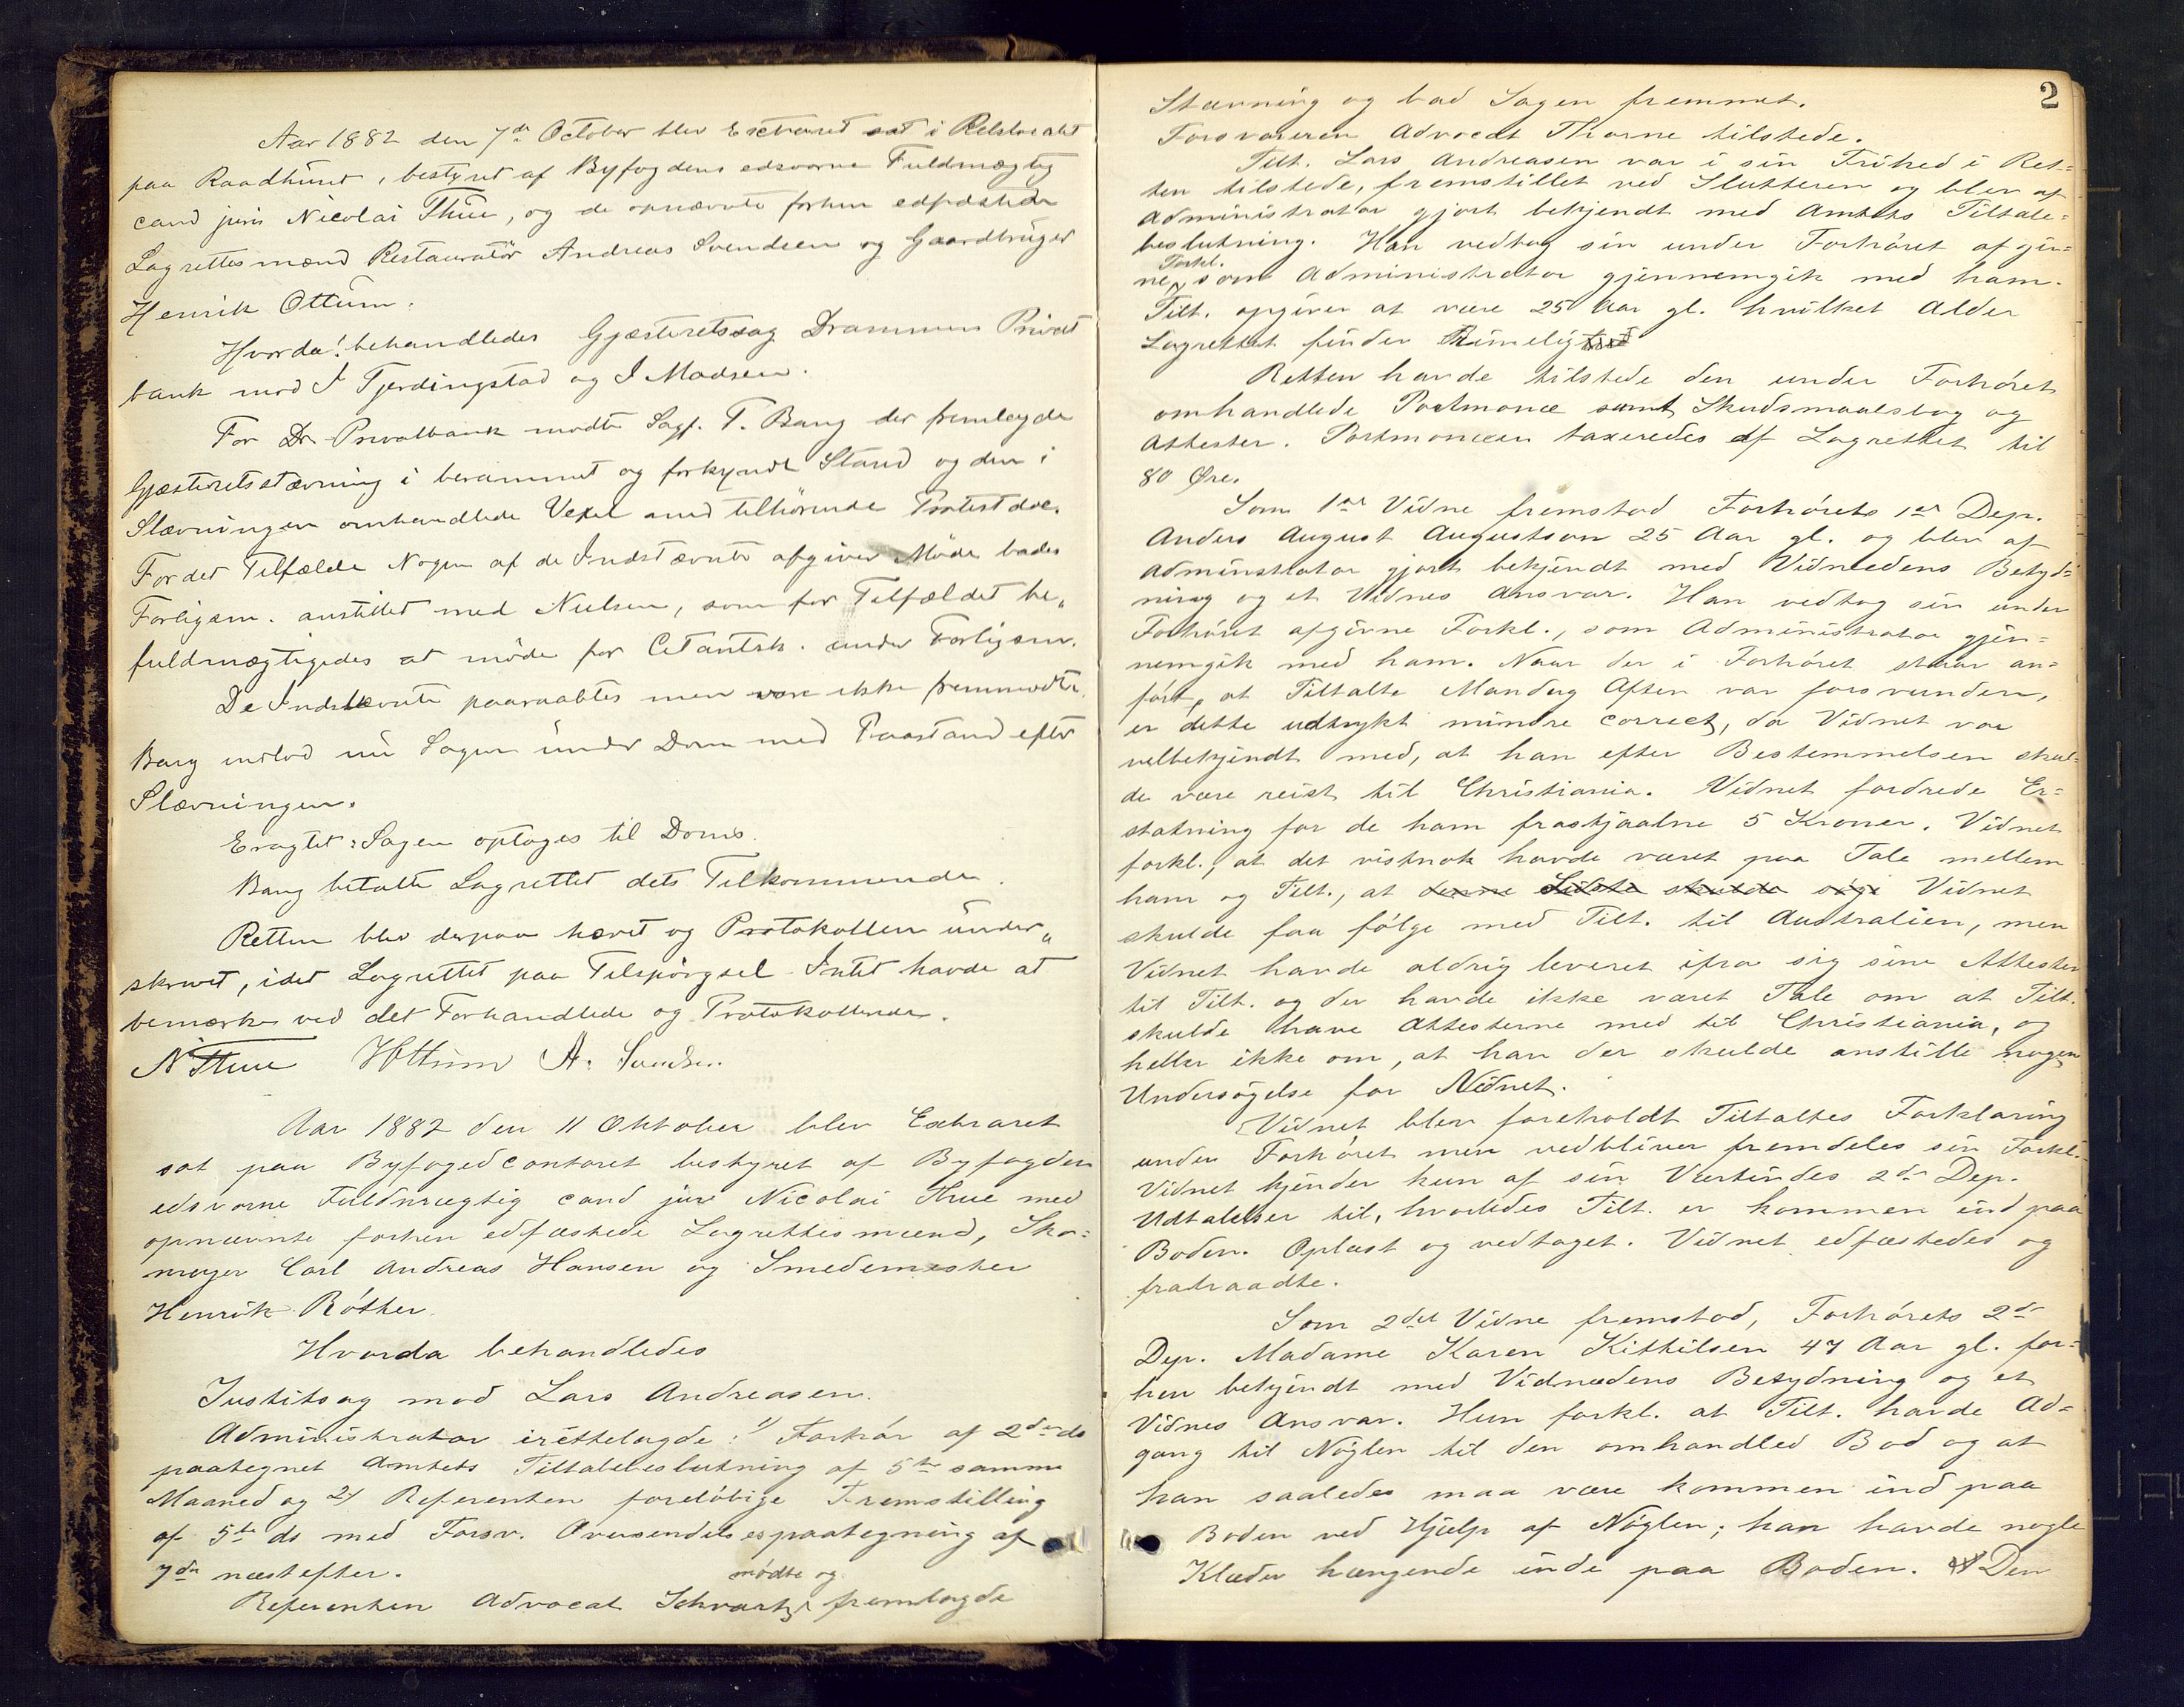 Aar 1882 den 7de October blev Extraret sat i Retslocalet
paa Raadhuset, bestyret af Byfogdens edsvorne Fuldmægtig
cand juris Nicolai Thue, og de opnævnte forhen edfæstede
Lagrettesmænd Restauratør Andreas Svendsen og Gaardbruger
Henrik Ottum.
Hvorda! behandledes Gjæsteretssag Drammens Privat
bank mod I Tjerdingstad og I Madsen.
For Dr. Privatbank mødte Sagf. T. Bang der fremlagde
Gjæsteretsstævning i berammet og forkyndt Stand og den i
Stævningen omhandlede Vexel med tilhørende Protestdoc.
For det Tilfælde Nogen af de Indstævnte afgiver Møde bades
Forligsm. anstillet med Nielsen, som for Tilfældet be„
fuldmægtigedes at møde for Citantsk. under Forligsm.
De Indstævnte paaraabtes men vare ikke fremmødte.
Bang indlod nu Sagen under Dom med Paastand efter
Stævningen.
Eragtet: Sagen optages til Doms.
Bang betalte Lagrettet dets Tilkommende.
Retten blev derpaa hævet og Protokollen under„
skrevet, idet Lagrettet paa Tilspørgsel Intet havde at
bemærke ved det Forhandlede og Protokollerede.
N Thue HOttum A. Svendsen.
Aar 1882 den 11 Oktober blev Extraret
sat paa Byfogedcontoret bestyret af Byfogden
edsvorne Fuldmægtig cand jure Nicolai Thue med
opnævnte forhen edfæstede Lagrettesmænd, Sko=
mager Carl Andreas Hansen og Smedemester
Henrik Röther.
Hvorda behandledes
Justitsag mod Lars Andreasen.
Administrator irettelagde: 1) Forhør af 2den ds
paategnet Amtets Tiltalebeslutning af 5te samme
Maaned og 2) Referenten foreløbige Fremstilling
af 5te ds med Forsv. Oversendelsespaategning af
7de næstefter.
Referenten Advocat Schwartz mødte og fremlagde
2
Stævning og bad Sagen fremmet.
Forsvareren Advocat Thorne tilstede.
Tilt. Lars Andreasen var i sin Frihed i Ret=
ten tilstede, fremstillet ved Slutteren og blev af
Administrator gjort bekjendt med Amtets Tiltale=
beslutning. Han vedtog sin under Forhøret afgiv=
ne Forkl. som Administrator gjennemgik med ham.
Tilt. opgiver at være 25 Aar gl. hvilket Alder
Lagrettet finder Rimelig
Retten havde tilstede den under Forhøret
omhandlede Portmonæ samt Skudsmaalsbog og
Attester. Portmonæen taxeredes af Lagrettet til
80 Øre.
Som 1ste Vidne fremstod Forhørets 1ste Dep.
Anders August Augustson 25 Aar gl. og blev af
Adminstrator gjort bekjendt med Vidneedens Betyd=
ning og et Vidnes Ansvar. Han vedtog sin under
Forhöret afgivne Forkl., som Administrator gjen=
nemgik med ham. Naar der i Forhöret staar an=
fört, at Tiltalte Mandag Aften var forsvunden,
er dette udtrykt mindre correct, da Vidnet var
velbekjendt med, at han efter Bestemmelsen skul=
de være reist til Christiania. Vidnet fordrede Er=
statning for de ham frastjaalne 5 Kroner. Vidnet
forkl., at det vistnok havde været paa Tale mellem
ham og Tilt., at denne Sidste skulde söge Vidnet
skulde faa fölge med Tilt. til Australien, men
Vidnet havde aldrig leveret ifra sig sine Attester
til Tilt. og der havde ikke været Tale om at Tilt.
skulde have Attesterne med til Christiania, og
heller ikke om, at han der skulde anstille nogen
Undersögelse for Vidnet.
Vidnet blev foreholdt Tiltaltes Forklaring
under Forhöret men vedbliver fremdeles sin Forkl.
Vidnet kjender kun af sin Værtindes 2den Dep.
Udtalelser til, hvorledes Tilt. er kommen ind paa
Boden. Oplæst og vedtaget. Vidnet edfæstedes og
fratraadte.
Som 2det Vidne fremstod, Forhørets 2de
Dep. Madame Karen Kittilsen 47 Aar gl. for=
hen bekjendt med Vidnædens Betydning og et
Vidnes Ansvar. Hun forkl. at Tilt. havde Ad=
gang til Nöglen til den omhandled Bod og at
han saaledes maa være kommen ind paa
Boden ved Hjælp af Nöglen; han havde nogle
Klæder hængende inde paa Boden. Den